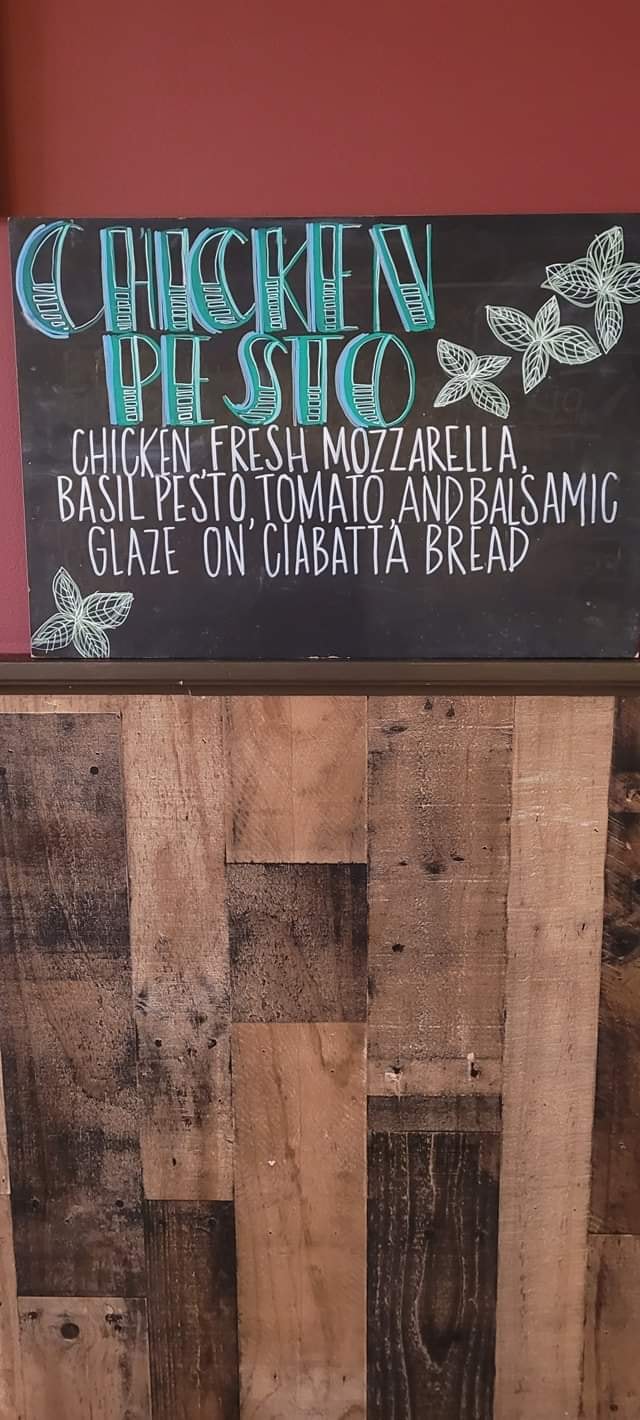 CHICKEN
PESTO
CHICKEN, FRESH MOZZARELLA,
BASIL PESTO, TOMATO, AND BALSAMIC
GLAZE ON CIABATTA BREAD